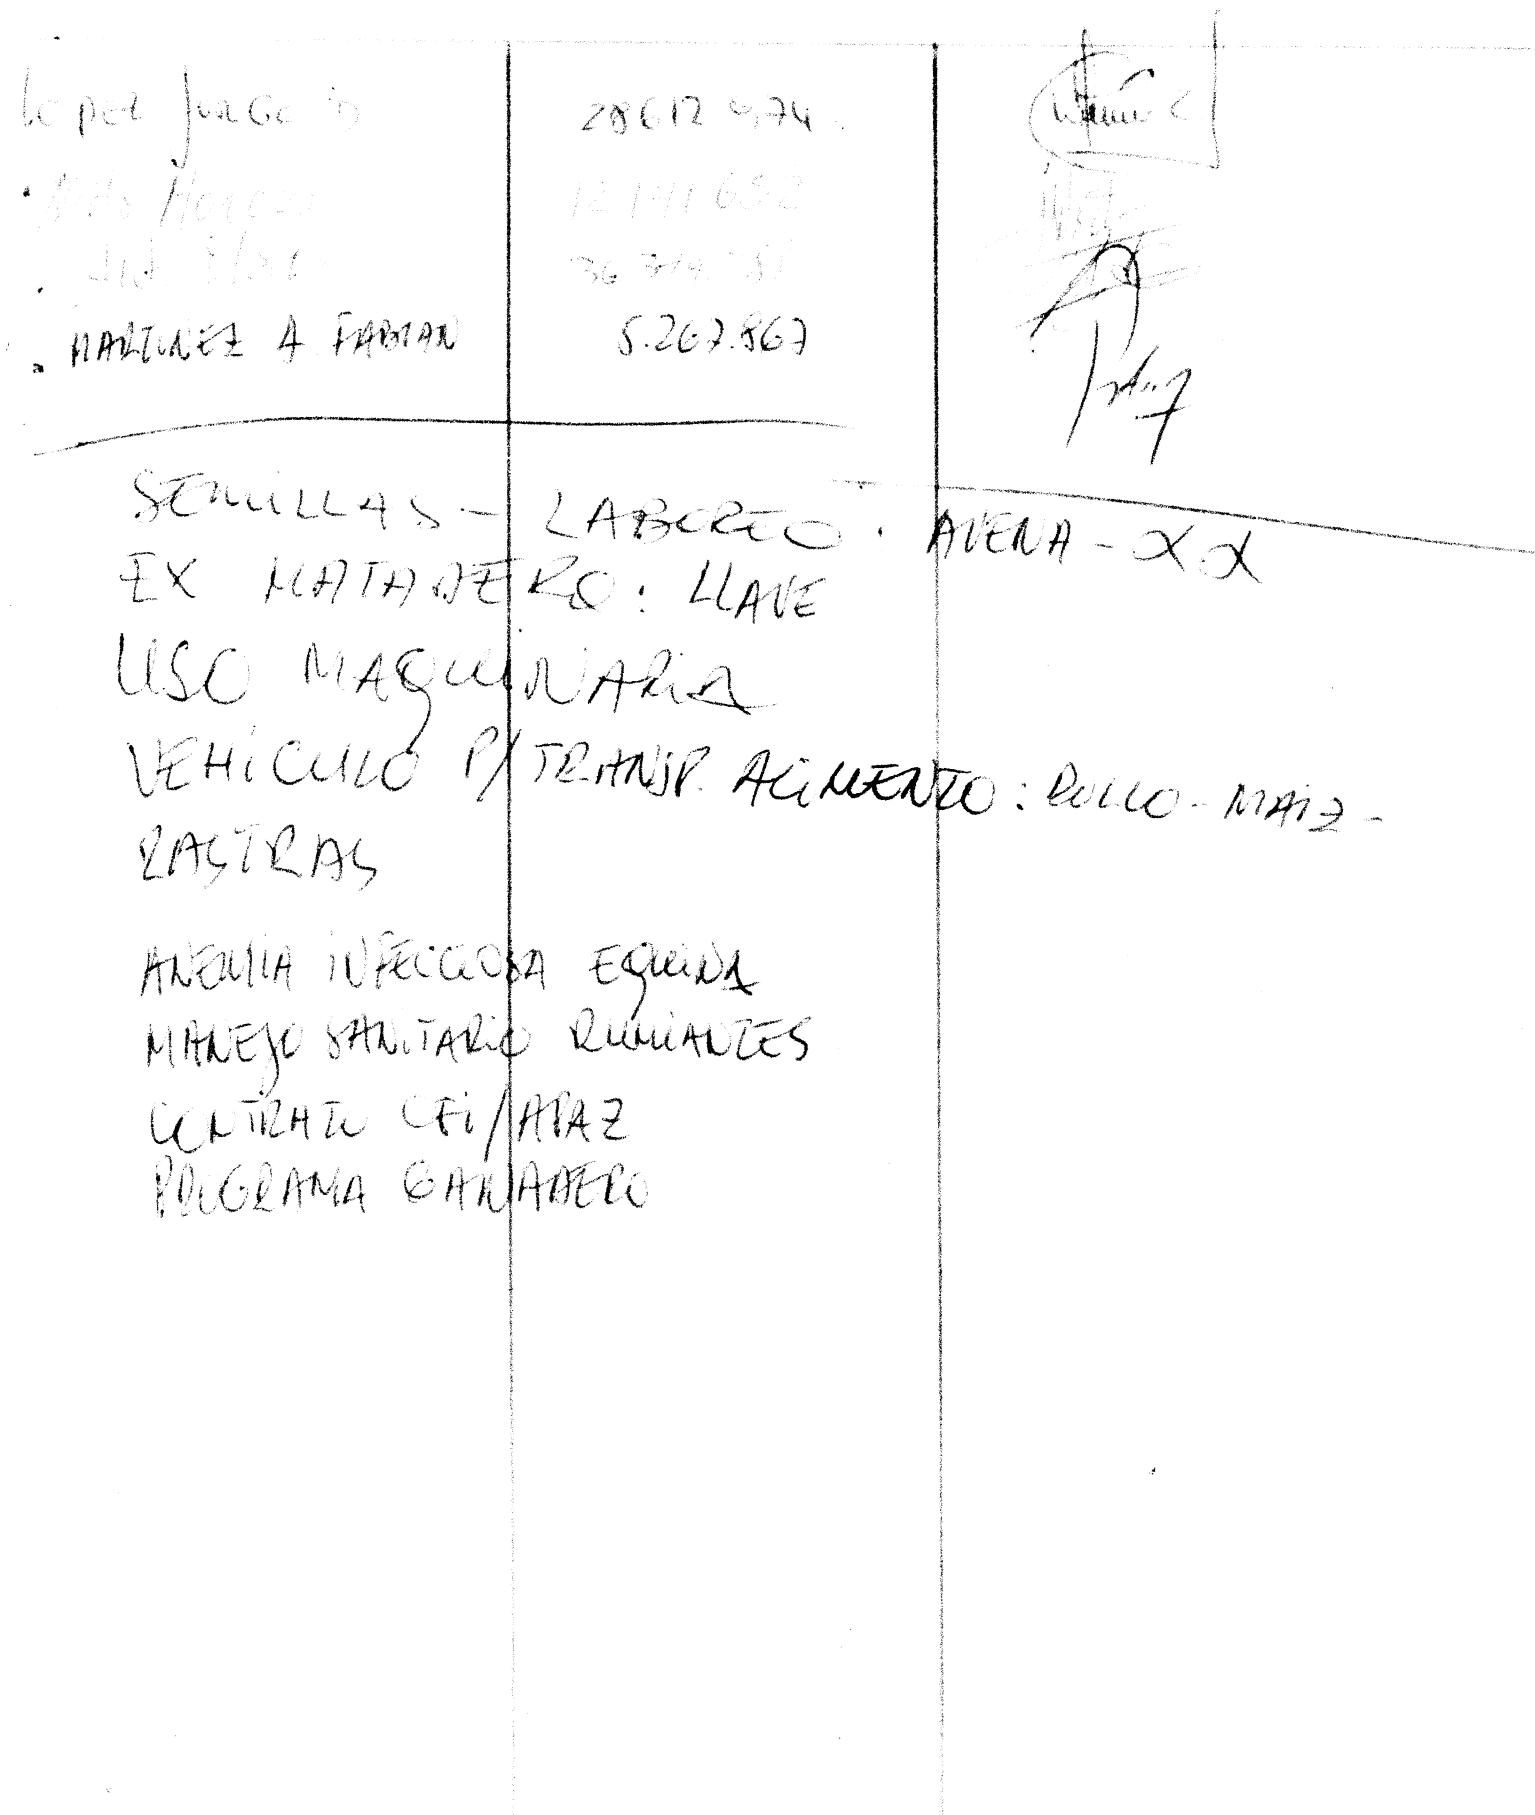 LOPEZ JORGE 28612974
12141652
MARTINEZ A FABIAN 5.267.867
SEMILLAS - LABOREO. AVENA - XX
EX MATADERO: LLAVE
USO MAQUINARIA
VEHICULO P/TRANSP. ALIMENTO: ROLLO - MAIZ -
RASTRAS
ANEMIA INFECCIOSA EQUINA
MANEJO SANITARIO RUMIANTES
CONTRATO CFI/APAZ
PROGRAMA GANADERO